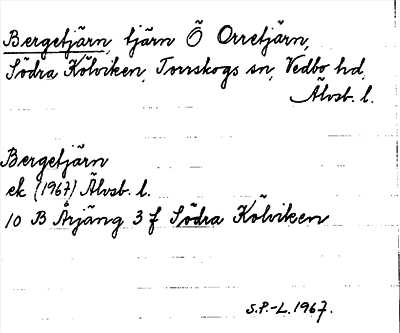 Bergetjärn, tjärn Ö Orretjärn,
Södra Kölviken, Torrskogs sn, Vedbo hd,
Älvsb. l.
Bergetjärn
ek (1967) Älvsb. l.
10 B Årjäng 3 f Södra Kölviken
S.P.-L. 1967.